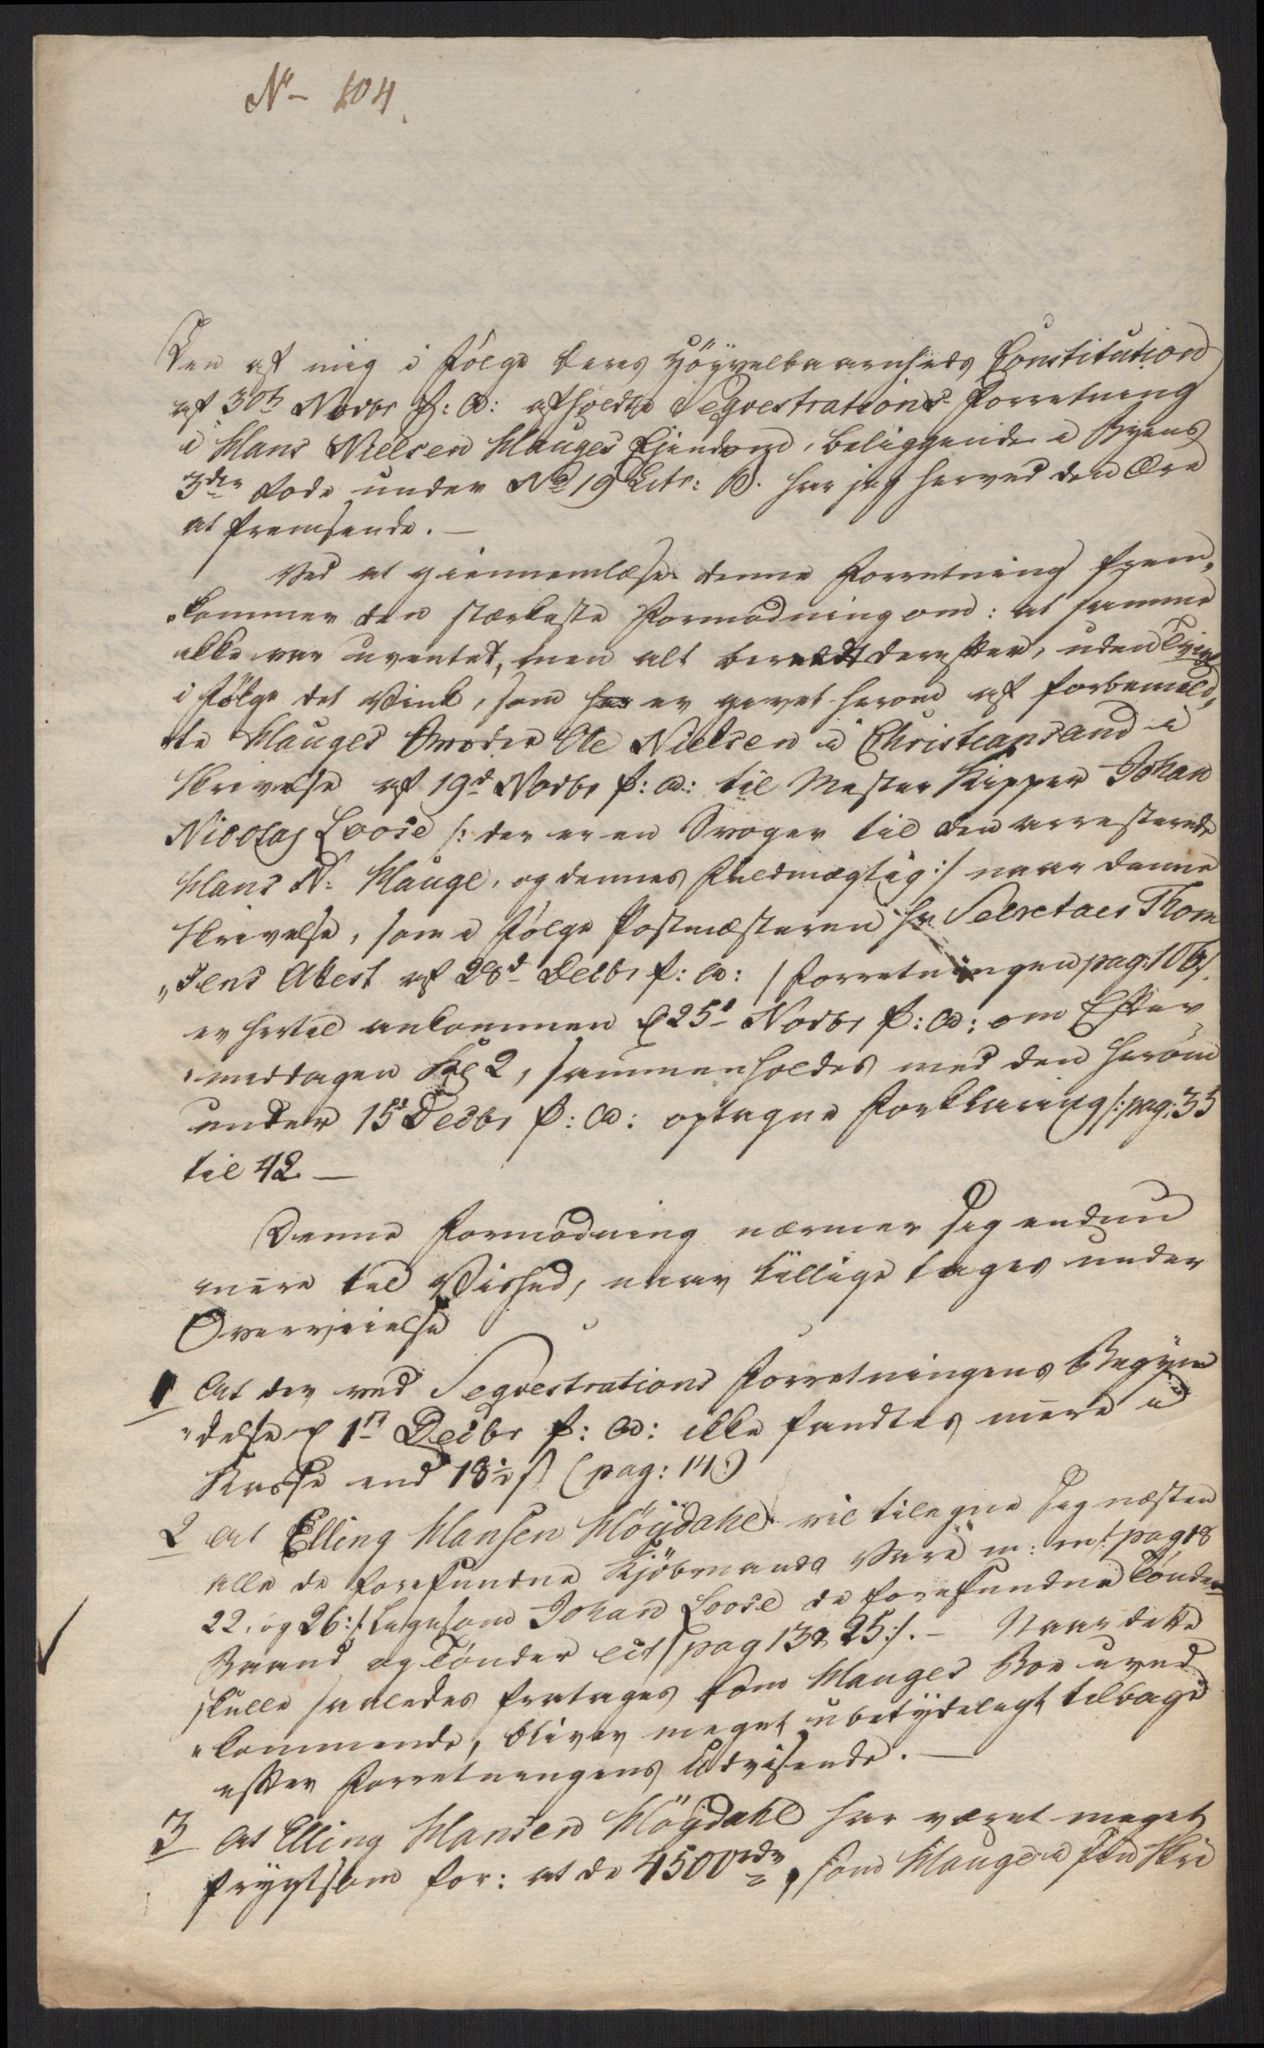 No 104.
Den af mig i følge Deres Höyvelbaarenheds Constitution
af 30te Novbr f: A: afholdte Seqvestrations-Forretning
i Hans Nielsen Hauges Eiendom, beliggende i Byens
3die Rode under No 19 Litr: B. har jeg herved den Ære
at fremsende. —
Ved at giennemlæse denne Forretning frem-
„kommer den stærkeste Formodning om: at samme
ikke var uventet, men alt beredt derefter, uden Tvivl
i følge det Vink, som er gevet herom af forbemeld-
te Hauges Broder Ole Nielsen i Christiansand i
Skrivelse af 19d Novbr f: a: til Mester Kipper Johan
Nicolaj Loose /: der er en Svoger til den arresterede
Hans N: Hauge, og dennes Fuldmægtig :/ naar denne
Skrivelse, som i følge Postmæsteren Hr Secretair Thom
„sens Attest af 28d Decbr f: a: / Forretningen pag: 106/.
er hertil ankommen d 25d Novbr f: a: om Efter
„middagen Kl 2, sammenholdes med den herom
under 15d Decbr f: a: optagne Forklaring /: pag: 35
til 42. —
Denne Formodning nærmer sig endnu
mere til Vished, naar tillige tages under
Overveielse
1 At der ved Seqvestrations Forretningens Begyn
„delse d 1ste Decbr f: a: ikke fandtes mere i
Kasse end 18½ s (pag: 14:)
2 At Elling Hansen Höydahl vil tilegne sig næsten
alle de forefundne Kjöbmands Vare m: m: / pag 18
22, og 26:/. Ligesom Johan Loose de forefundne Tönder
Baand og Tönder /: pag 13 & 25:/. — Naar dette
skulle saaledes fratages som Hauges Boe uved
„kommende, bliver meget ubetydeligt tilbage
efter Forretningens Udvisende. —
3 At Elling Hansen Höydahl har været meget
frygtsom for: at de 4500 rdr, som Hauge i sin Skri